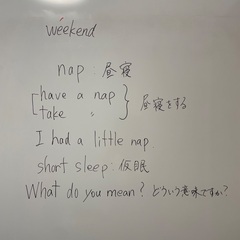 weekend
nap : 昼寝
[have a nap } 昼寝をする
[take 〃 }
I had a little nap
short sleep : 仮眠
What do you mean? どういう意味ですか?